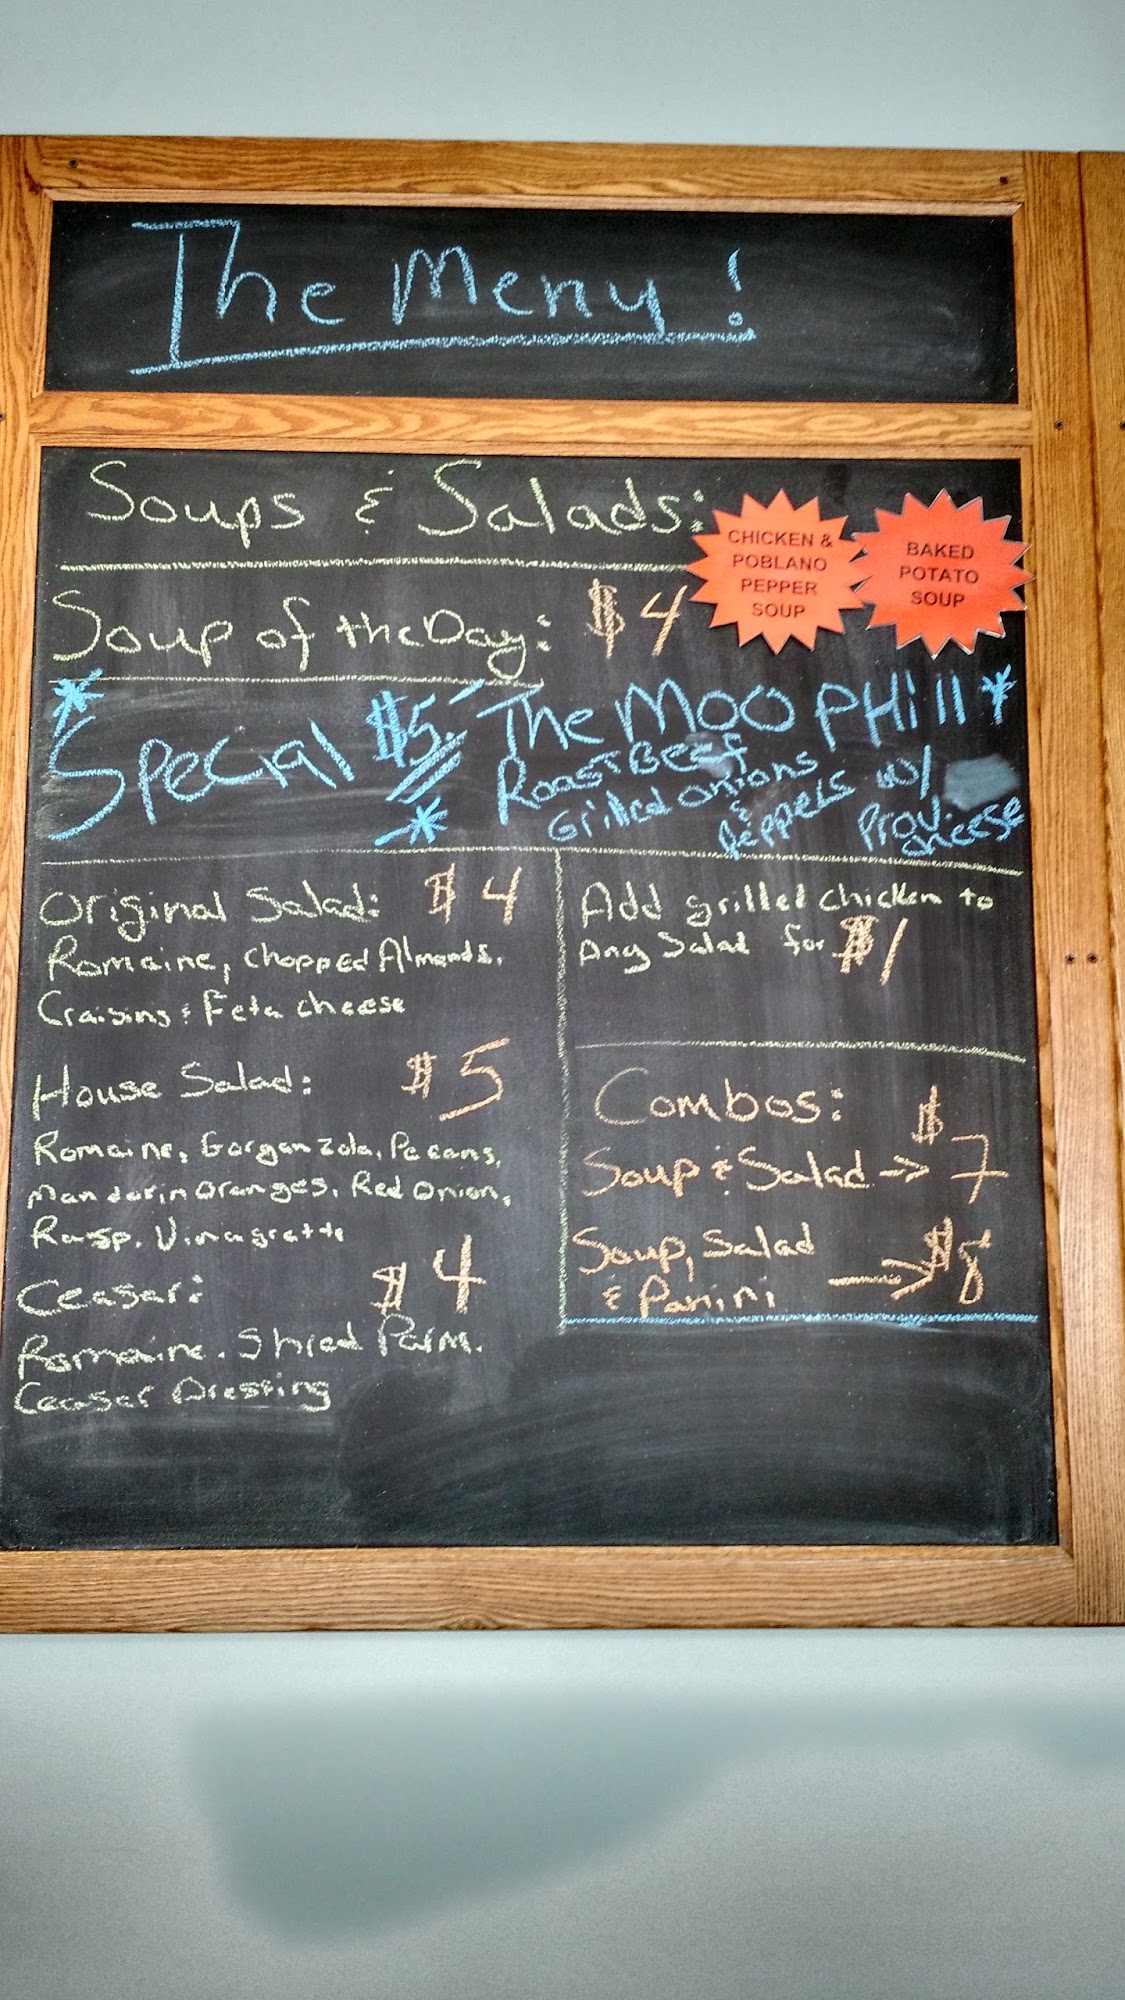 The Menu!
Soups & Salads:
CHICKEN &
POBLANO
PEPPER
SOUP
BAKED
POTATO
SOUP
Soup of the Day: $4
*Special $5. The Moo PHill*
Roast Beef
Grilled onions
& Peppers w/
Prov. cheese
Original Salad: $4
Romaine, chopped Almonds,
Craisins & Feta cheese
House Salad: $5
Romaine, Gorgonzola, Pecans,
Mandarin oranges, Red onion,
Rasp. Vinagrette
Ceasar: $4
Romaine. Shred Parm.
Ceasar Dressing
Add grilled chicken to
any Salad for $1
Combos:
Soup & Salad -> $7
Soup, Salad
& Panini -> $8